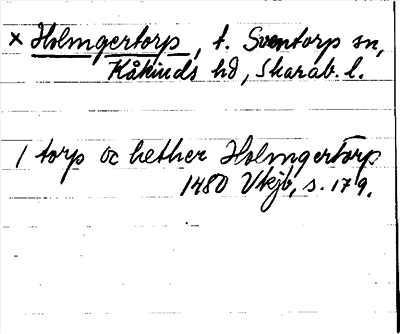 × Holmgertorp, t. Sventorp sn,
Kåkinds hd, Skarab. l.
1 torp oc hether Holmgertorp
1480 Vkjb, s. 179.